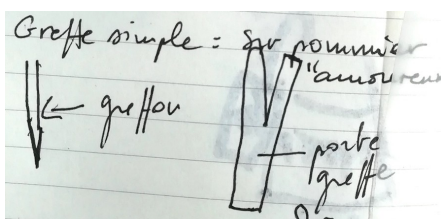 Greffe simple = sur pommier
"amoureux
greffon
porte
greffe